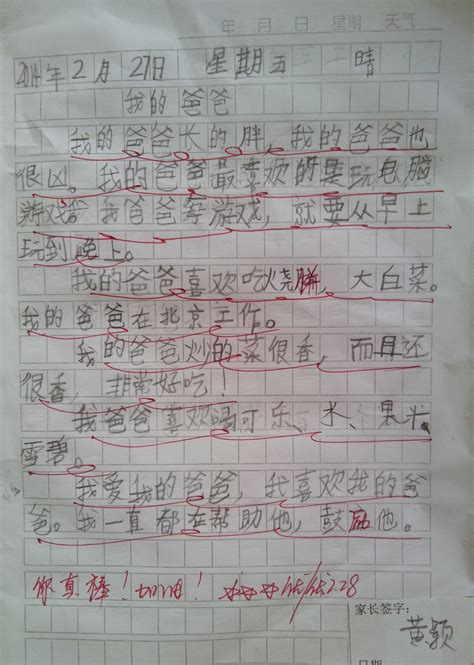 年 月 日 星期 天气
2014年2月27日 星期五 晴
我的爸爸
我的爸爸长的胖，我的爸爸也
很凶。我的爸爸最喜欢的是玩电脑
游戏，我爸爸弄游戏，就要从早上
玩到晚上。
我的爸爸喜欢吃烧饼，大白菜。
我的爸爸在北京工作。
我的爸爸炒的菜很香，而且还
很香，非常好吃！
我爸爸喜欢喝可乐、水、果汁、
雪碧。
我爱我的爸爸，我喜欢我的爸
爸。我一直都在帮助他，鼓励他。
你真棒！加油！ 2.28
家长签字：
黄颖
日期